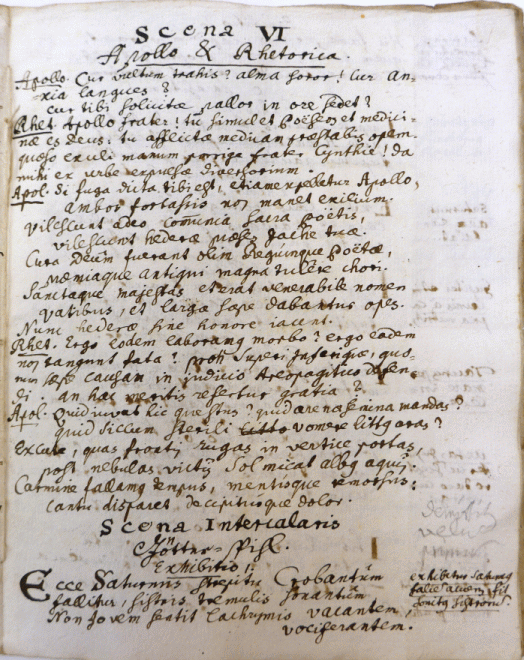 Scena VI
Apollo & Rhetorica.
Apollo. Cur vultum trahis? alma soror! Cur an-
xia langues?
cur tibi solicite pallor in ore sedet?
Rhet. Apollo frater! tu simul et Poëseos et medici-
næ es Deus: tu afflictæ medicam præstabis opem.
quæso exuli manum porrige frater Cynthie! Da
mihi ex urbe expulsæ diversorium.
Apol. Si fuga dicta tibi est, etiam expelletur Apollo,
ambos fortassis non manet exilium.
vilescunt adeo communia sacra Poëtis,
vilescunt hederæ tuæ.
Cura Deum fuerant olim Regumque Poëtæ,
præmiaque antiqui magna tulere chori.
Sanctaque majestas et erat venerabile nomen
vatibus, et largæ sæpe dabantur opes.
Nunc hederæ sine honore iacent.
Rhet. Ergo eodem laboramus morbo? ergo eadem
nos tangunt fata? proh superi inferique, quo-
rum sæpe causam in judicio Areopagitico defen-
di. an hæc meritis refertur gratia?
Apol. quid iuvat hic questus? quid arenæ semina mandas?
quid siccum sterili vomere littus aras?
Excute, quas frontis rugas in vertice portas,
post nebulas victis Sol micat albus aquis.
Carmine fallamus tempus, mentisque remorsus;
cantu disparet decipiturque dolor.
Scena Intercalaris
Götter-Spihl.
Exhibitio 1.
Ecce Saturnus strepitu Corybantum
fallitur, sistris tremulis sonantum
Non Jovem sentit lachrymis vacantem,
vociferantem.
exhibetur Saturnus